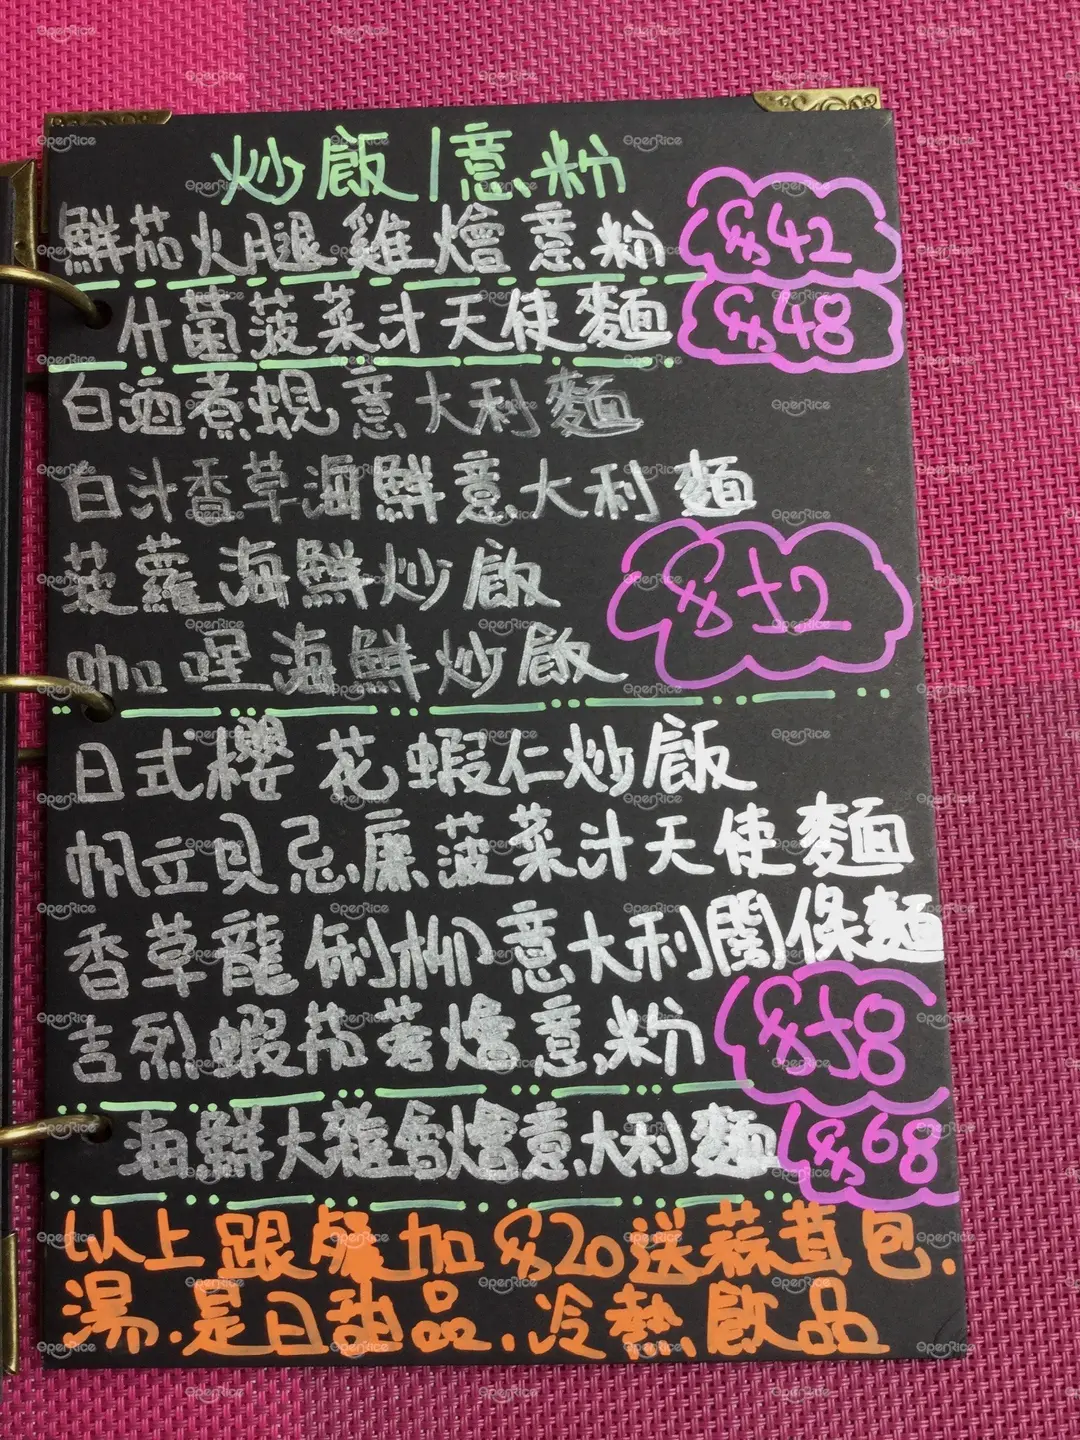 炒飯/意粉
鮮茄火腿雞燴意粉 $42
什菌菠菜汁天使麵 $48
白酒煮蜆意大利麵
白汁香草海鮮意大利麵
菠蘿海鮮炒飯 $52
咖喱海鮮炒飯
日式櫻花蝦仁炒飯
帆立貝忌廉菠菜汁天使麵
香草龍脷柳意大利闊條麵
吉列蝦茄蓉燴意粉 $58
海鮮大雜會燴意大利麵 $68
以上跟餐加$20送蒜茸包.
湯.是日甜品.冷熱飲品